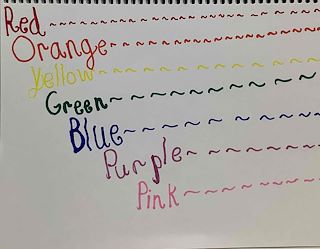 Red ~~~~~~~~~~~~~~~~~~~~~~~~
Orange ~~~~~~~~~~~~~~~~~~~~
Yellow ~~~~~~~~~~~~~~~~~~
Green ~~~~~~~~~~~~~~~~
Blue ~~~~~~~~~~~
Purple ~~~~~~~~~
Pink ~~~~~~~~~~